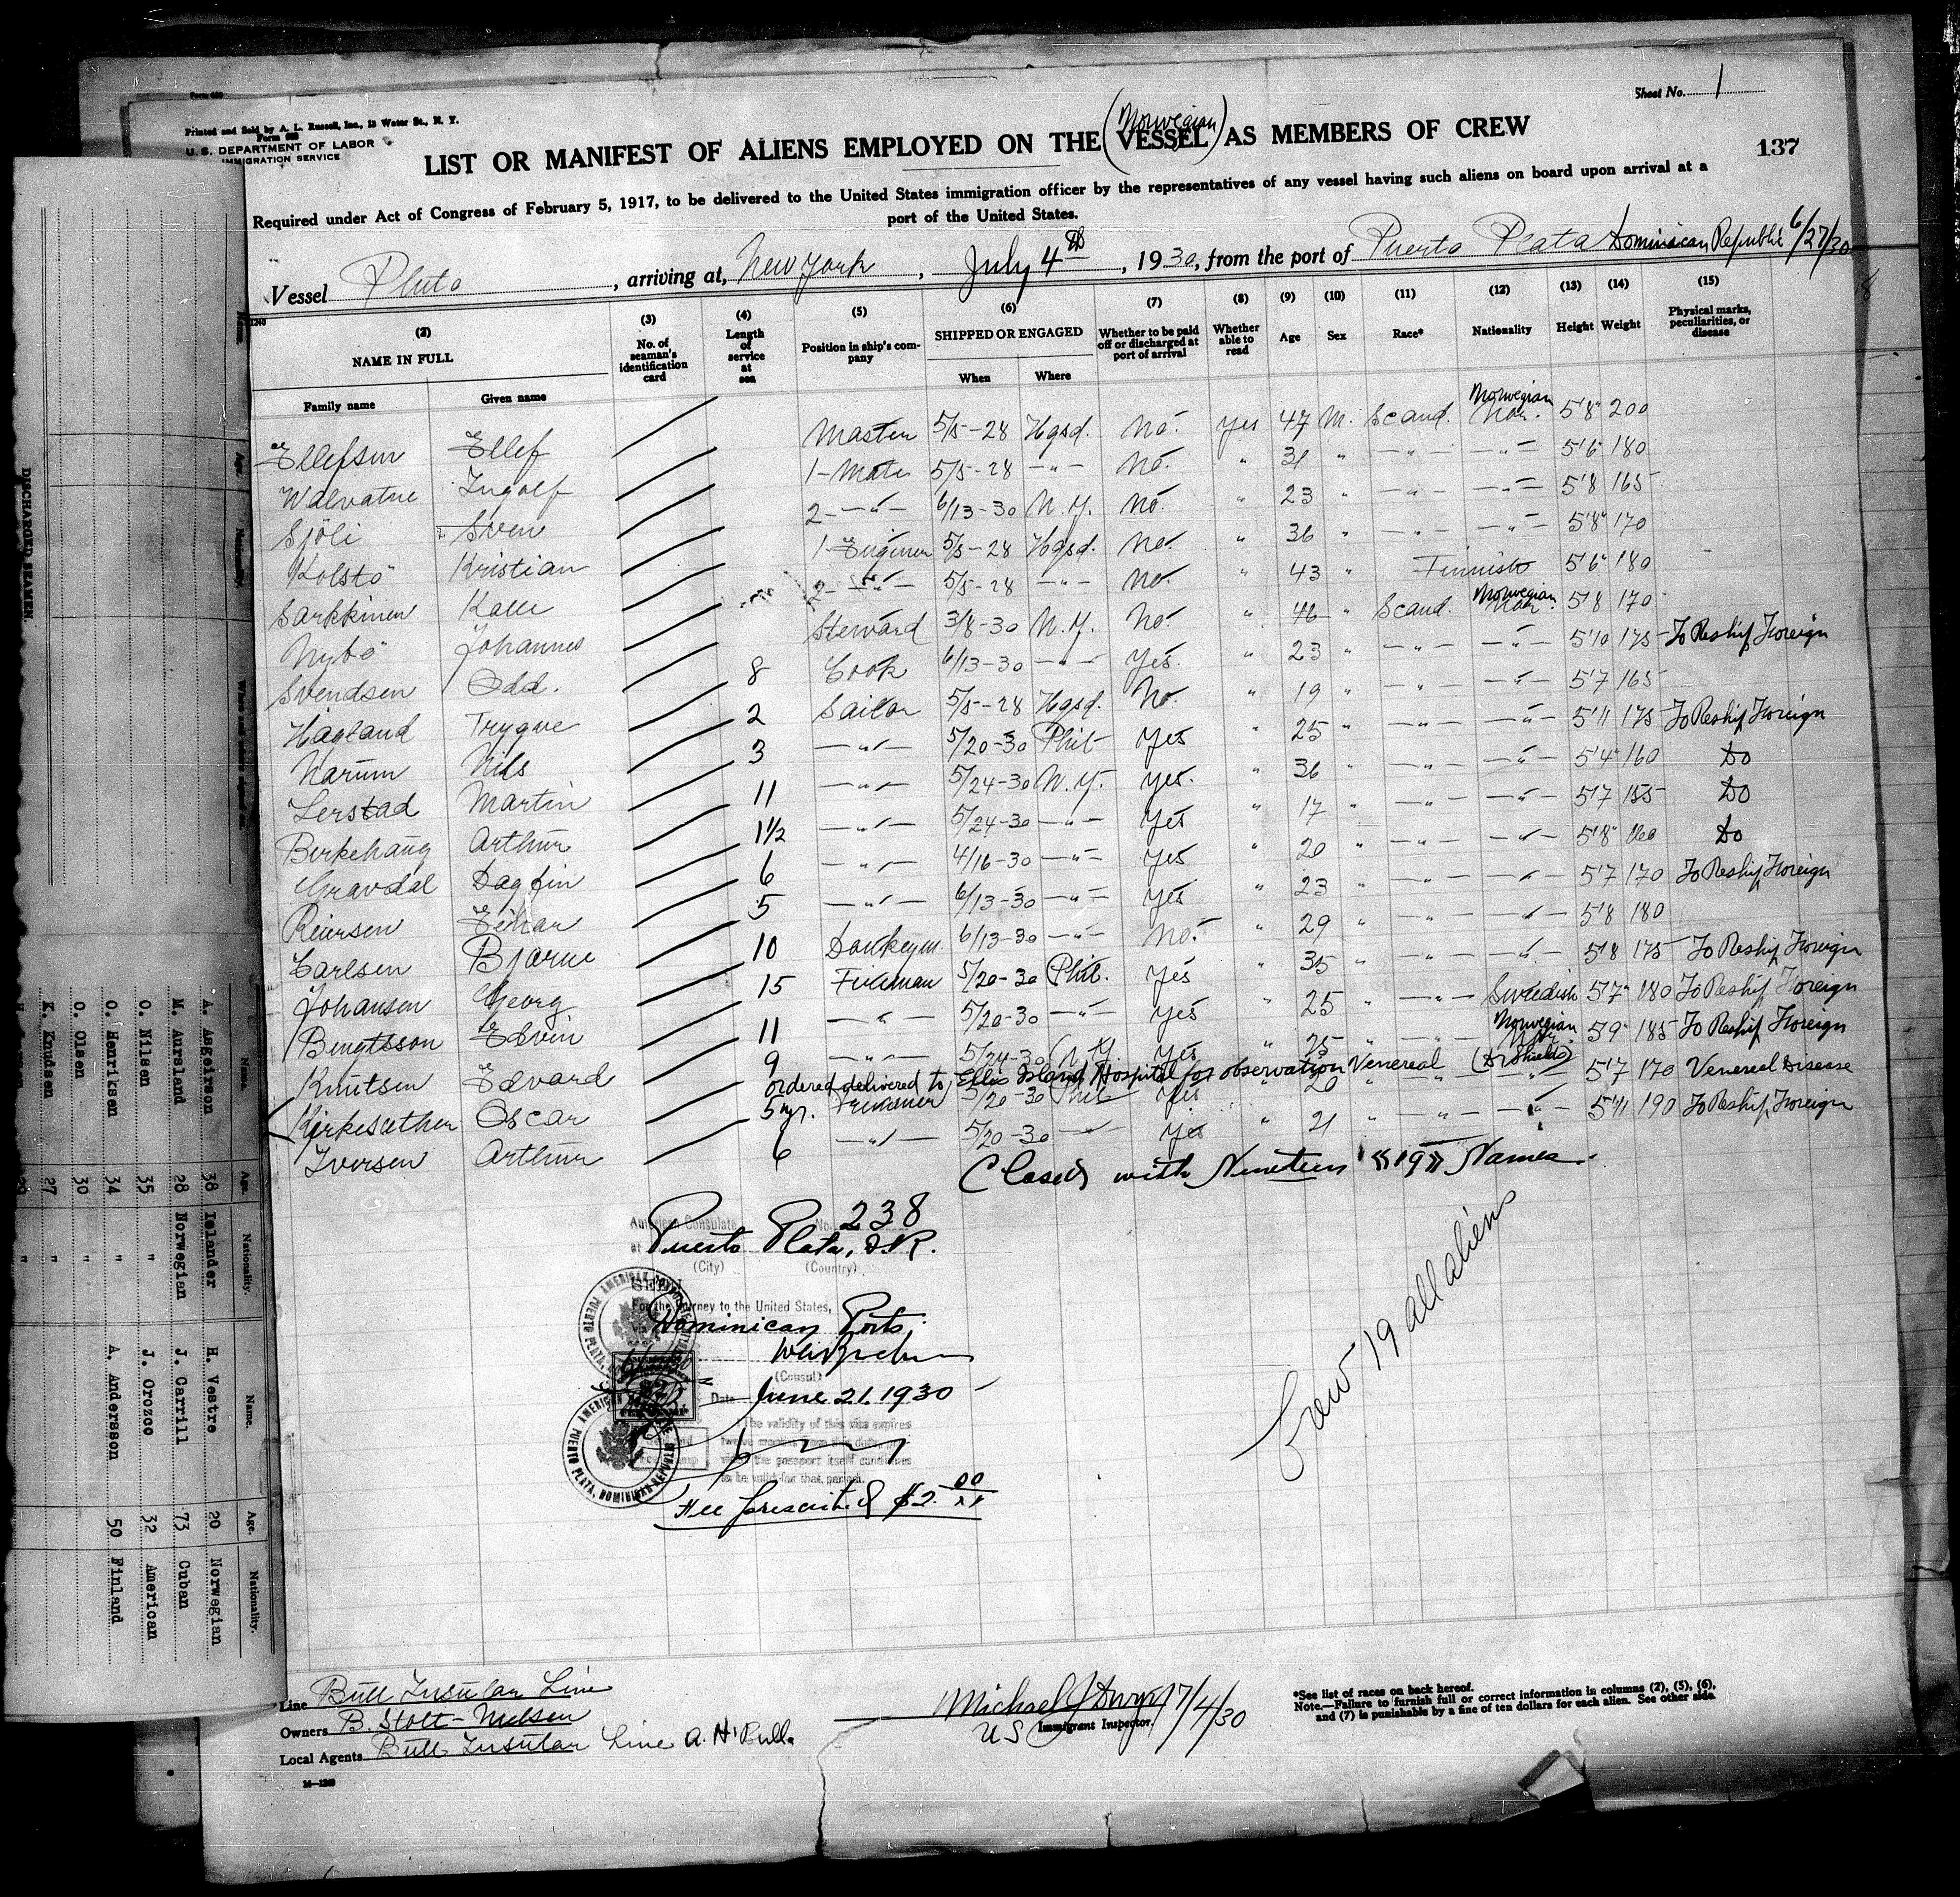 Form 680
Sheet No. 1
Printed and Sold by A. L. Russell, Inc., 13 Water St., N. Y.
Form 680
U. S. DEPARTMENT OF LABOR
IMMIGRATION SERVICE
LIST OR MANIFEST OF ALIENS EMPLOYED ON THE (Norwegian) VESSEL AS MEMBERS OF CREW
137
Required under Act of Congress of February 5, 1917, to be delivered to the United States immigration officer by the representatives of any vessel having such aliens on board upon arrival at a
port of the United States.
Vessel Pluto, arriving at, New York, July 4th, 1930, from the port of Puerto Plata Dominican Republic 6/27/30
(2) NAME IN FULL Family name Given name
(3) No. of seaman's identification card
(4) Length of service at sea
(5) Position in ship's company
(6) SHIPPED OR ENGAGED When Where
(7) Whether to be paid off or discharged at port of arrival
(8) Whether able to read
(9) Age
(10) Sex
(11) Race*
(12) Nationality
(13) Height
(14) Weight
(15) Physical marks, peculiarities, or disease
Ellefsen Ellef Master 5/5-28 Hgsd. No. yes 47 M. Scand. Norwegian 5'8" 200
Walvatne Ingolf 1-Mate 5/5-28 -"- No. " 31 " -"- -"- 5'6 180
Sjöli Sven 2- -"- 6/13-30 N.Y. No. " 23 " -"- -"- 5'8 165
Kolstö Kristian 1-Engineer 5/5-28 Hgsd. No. " 36 " -"- -"- 5'8" 170
Sarkkinen Kalle 2- -"- 5/5-28 -"- No. " 43 " Finnish 5'6" 180
Nybö Johannes Steward 3/8-30 N.Y. No. " 46 " Scand. Norwegian 5'8 170
Svendsen Odd. 8 Cook 6/13-30 -"- Yes. " 23 " -"- -"- 5'10 175 To Reship Foreign
Hagland Trygve 2 Sailor 5/5-28 Hgsd. No. " 19 " -"- -"- 5'7 165
Narum Nils 3 -"- 5/20-30 Phil Yes " 25 " -"- -"- 5'11 175 To Reship Foreign
Lerstad Martin 11 -"- 5/24-30 N.Y. Yes. " 36 " -"- -"- 5'4" 160 Do
Birkehaug Arthur 1 1/2 -"- 5/24-30 -"- Yes " 17 " -"- -"- 5'7 155 Do
Gravdal Dagfin 6 -"- 4/16-30 -"- Yes " 20 " -"- -"- 5'8" 160 Do
Reiersen Einar 5 -"- 6/13-30 -"- Yes " 23 " -"- -"- 5'7 170 To Reship Foreign
Carlsen Bjarne 10 Donkeym. 6/13-30 -"- No. " 29 " -"- -"- 5'8 180
Johansen Georg 15 Fireman 5/20-30 Phil. Yes " 35 " -"- -"- 5'8 175 To Reship Foreign
Bengtsson Edvin 11 -"- 5/20-30 -"- Yes " 25 " -"- Swedish 5'7" 180 To Reship Foreign
Knutsen Edvard 9 -"- 5/24-30 N.Y. Yes " 25 Norwegian 5'9" 185 To Reship Foreign
ordered delivered to Ellis Island Hospital for observation Venereal (Dr Shields)
Kirkesæther Oscar 5 yr. 5/20-30 Phil Yes " 20 " " " 5'7 170 Venereal Disease
Iversen Arthur 6 -"- 5/20-30 -"- Yes " 21 " -"- -"- 5'11 190 To Reship Foreign
Closed with Nineteen "19" Names.
American Consulate No. 238
at Puerto Plata, D.R.
(City) (Country)
SEEN
For the journey to the United States,
via Dominican Ports
(Consul)
Date June 21. 1930
The validity of this visa expires
twelve months from this date
the passport itself continues
to be valid for that period.
PUERTO PLATA, DOMINICAN REPUBLIC
Fee prescribed $2.00
Crew 19 all aliens
Line Bull Insular Line
Owners B. Stolt-Nielsen
Local Agents Bull Insular Line A. H. Bull
14—1240
Michael J Dwyer 7/4/30
US Immigrant Inspector.
*See list of races on back hereof.
Note.—Failure to furnish full or correct information in columns (2), (5), (6),
and (7) is punishable by a fine of ten dollars for each alien. See other side.
DISCHARGED SEAMEN.
Name. Age. Nationality. Name. Age. Nationality.
A. Asgeirson 38 Islander H. Vestre 20 Norwegian
M. Aursland 28 Norwegian J. Carrill 73 Cuban
O. Nilsen 35 " J. Orozco 32 American
O. Henriksen 34 " A. Andersson 50 Finland
O. Olsen 30 "
K. Knudsen 27 "